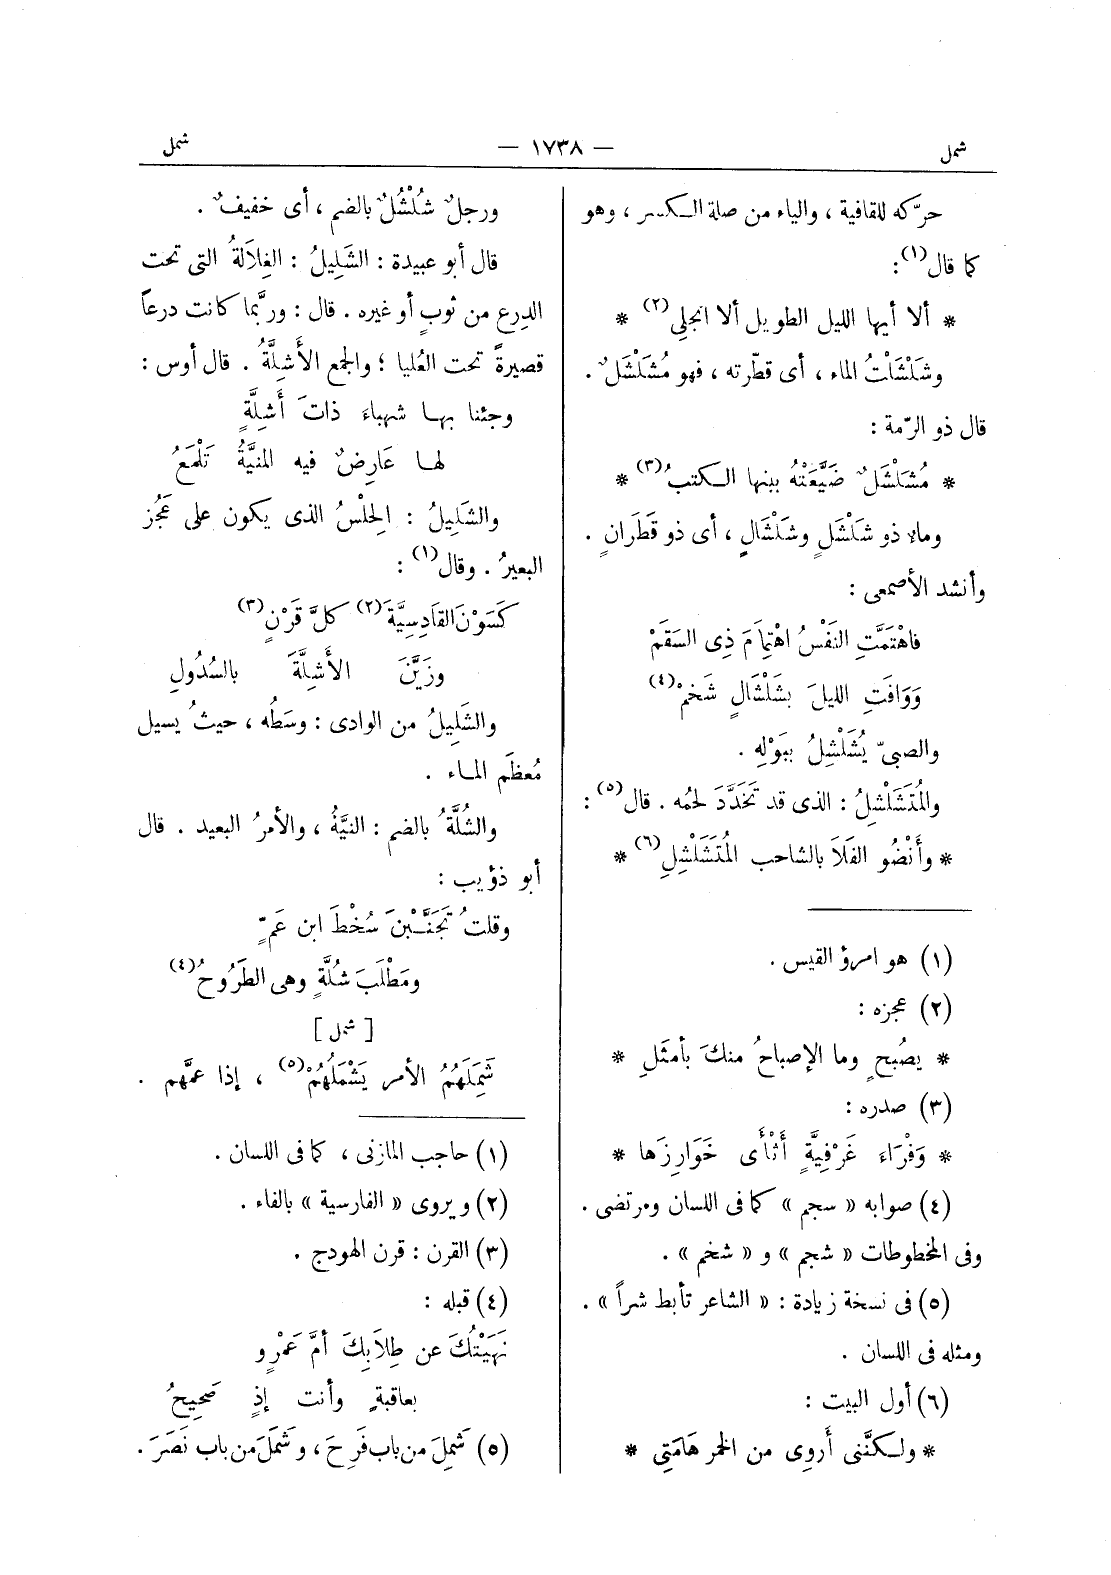 شمل — ١٧٣٨ — شمل
حرّكه للقافية ، والياء من صلة الكسر ، وهو
كما قال(١) :
* ألا أيها الليل الطويل ألا انجلِى(٢) *
وشَلْشَلْتُ الماء ، أى قطّرته ، فهو مُشَلْشَلٌ .
قال ذو الرّمة :
* مُشَلْشَلٌ ضَيَّعَتْهُ بينها الكتبُ(٣) *
وماء ذو شَلْشَلٍ وشَلْشَالٍ ، أى ذو قَطَرانٍ .
وأنشد الأصمعى :
فاهْتَمَّتِ النَفْسُ اهْتِمَامَ ذِى السَقَمْ
وَوَافَتِ الليلَ بشَلْشَالٍ شَخمْ(٤)
والصبىّ يُشَلْشِلُ ببَوْلِهِ .
والمُتَشَلْشِلُ : الذى قد تَخَدَّدَ لحمُه . قال(٥) :
* وأَنْضُو الفَلاَ بالشاحب المُتَشَلْشِلِ(٦) *
(١) هو امرؤ القيس .
(٢) عجزه :
* بصُبحٍ وما الإصباحُ منكَ بأمثَلِ *
(٣) صدره :
* وَفْرَاءَ غَرْفِيَّةٍ أَثْأَى خَوَارِزَها *
(٤) صوابه « سجم » كما فى اللسان ومرتضى .
وفى المخطوطات « شجم » و « شخم » .
(٥) فى نسخة زيادة : « الشاعر تأبط شراً » .
ومثله فى اللسان .
(٦) أول البيت :
* ولكنَّنى أَروِى من الخمر هَامَتِى *
ورجلٌ شُلْشُلٌ بالضم ، أى خفيفٌ .
قال أبو عبيدة : الشَلِيلُ : الغِلاَلةُ التى تحت
الدِرع من ثوبٍ أو غيره . قال : وربَّما كانت درعاً
قصيرةً تحت العُليا ؛ والجمع الأَشِلَّةُ . قال أوس :
وجئنا بها شهباءَ ذاتَ أَشِلَّةٍ
لها عَارِضٌ فيه المنيَّةُ تَلْمَعُ
والشَلِيلُ : الحِلْسُ الذى يكون على عَجُز
البعيرُ . وقال(١) :
كَسَوْنَ القَادِسِيَّةَ(٢) كلَّ قَرْنٍ(٣)
وزَيَّنَ الأَشِلَّةَ بالسُدُولِ
والشَلِيلُ من الوادى : وسَطُه ، حيثُ يسيل
مُعظَم الماء .
والشُلَّةُ بالضم : النيَّةُ ، والأمرُ البعيد . قال
أبو ذؤيب :
وقلتُ تَجَنَّبْنَ سُخْطَ ابن عَمٍّ
ومَطْلَبَ شُلَّةٍ وهى الطَرُوحُ(٤)
[ شمل ]
شَمِلَهُمُ الأمر يَشْمَلُهُمْ(٥) ، إذا عمَّهم .
(١) حاجب المازنى ، كما فى اللسان .
(٢) ويروى « الفارسية » بالفاء .
(٣) القرن : قرن الهودج .
(٤) قبله :
نَهَيْتُكَ عن طِلاَبِكَ أمَّ عَمْرٍو
بعاقبةٍ وأنت إذٍ صَحِيحُ
(٥) شَمِلَ من باب فَرِحَ ، وشَمَلَ من باب نَصَرَ .